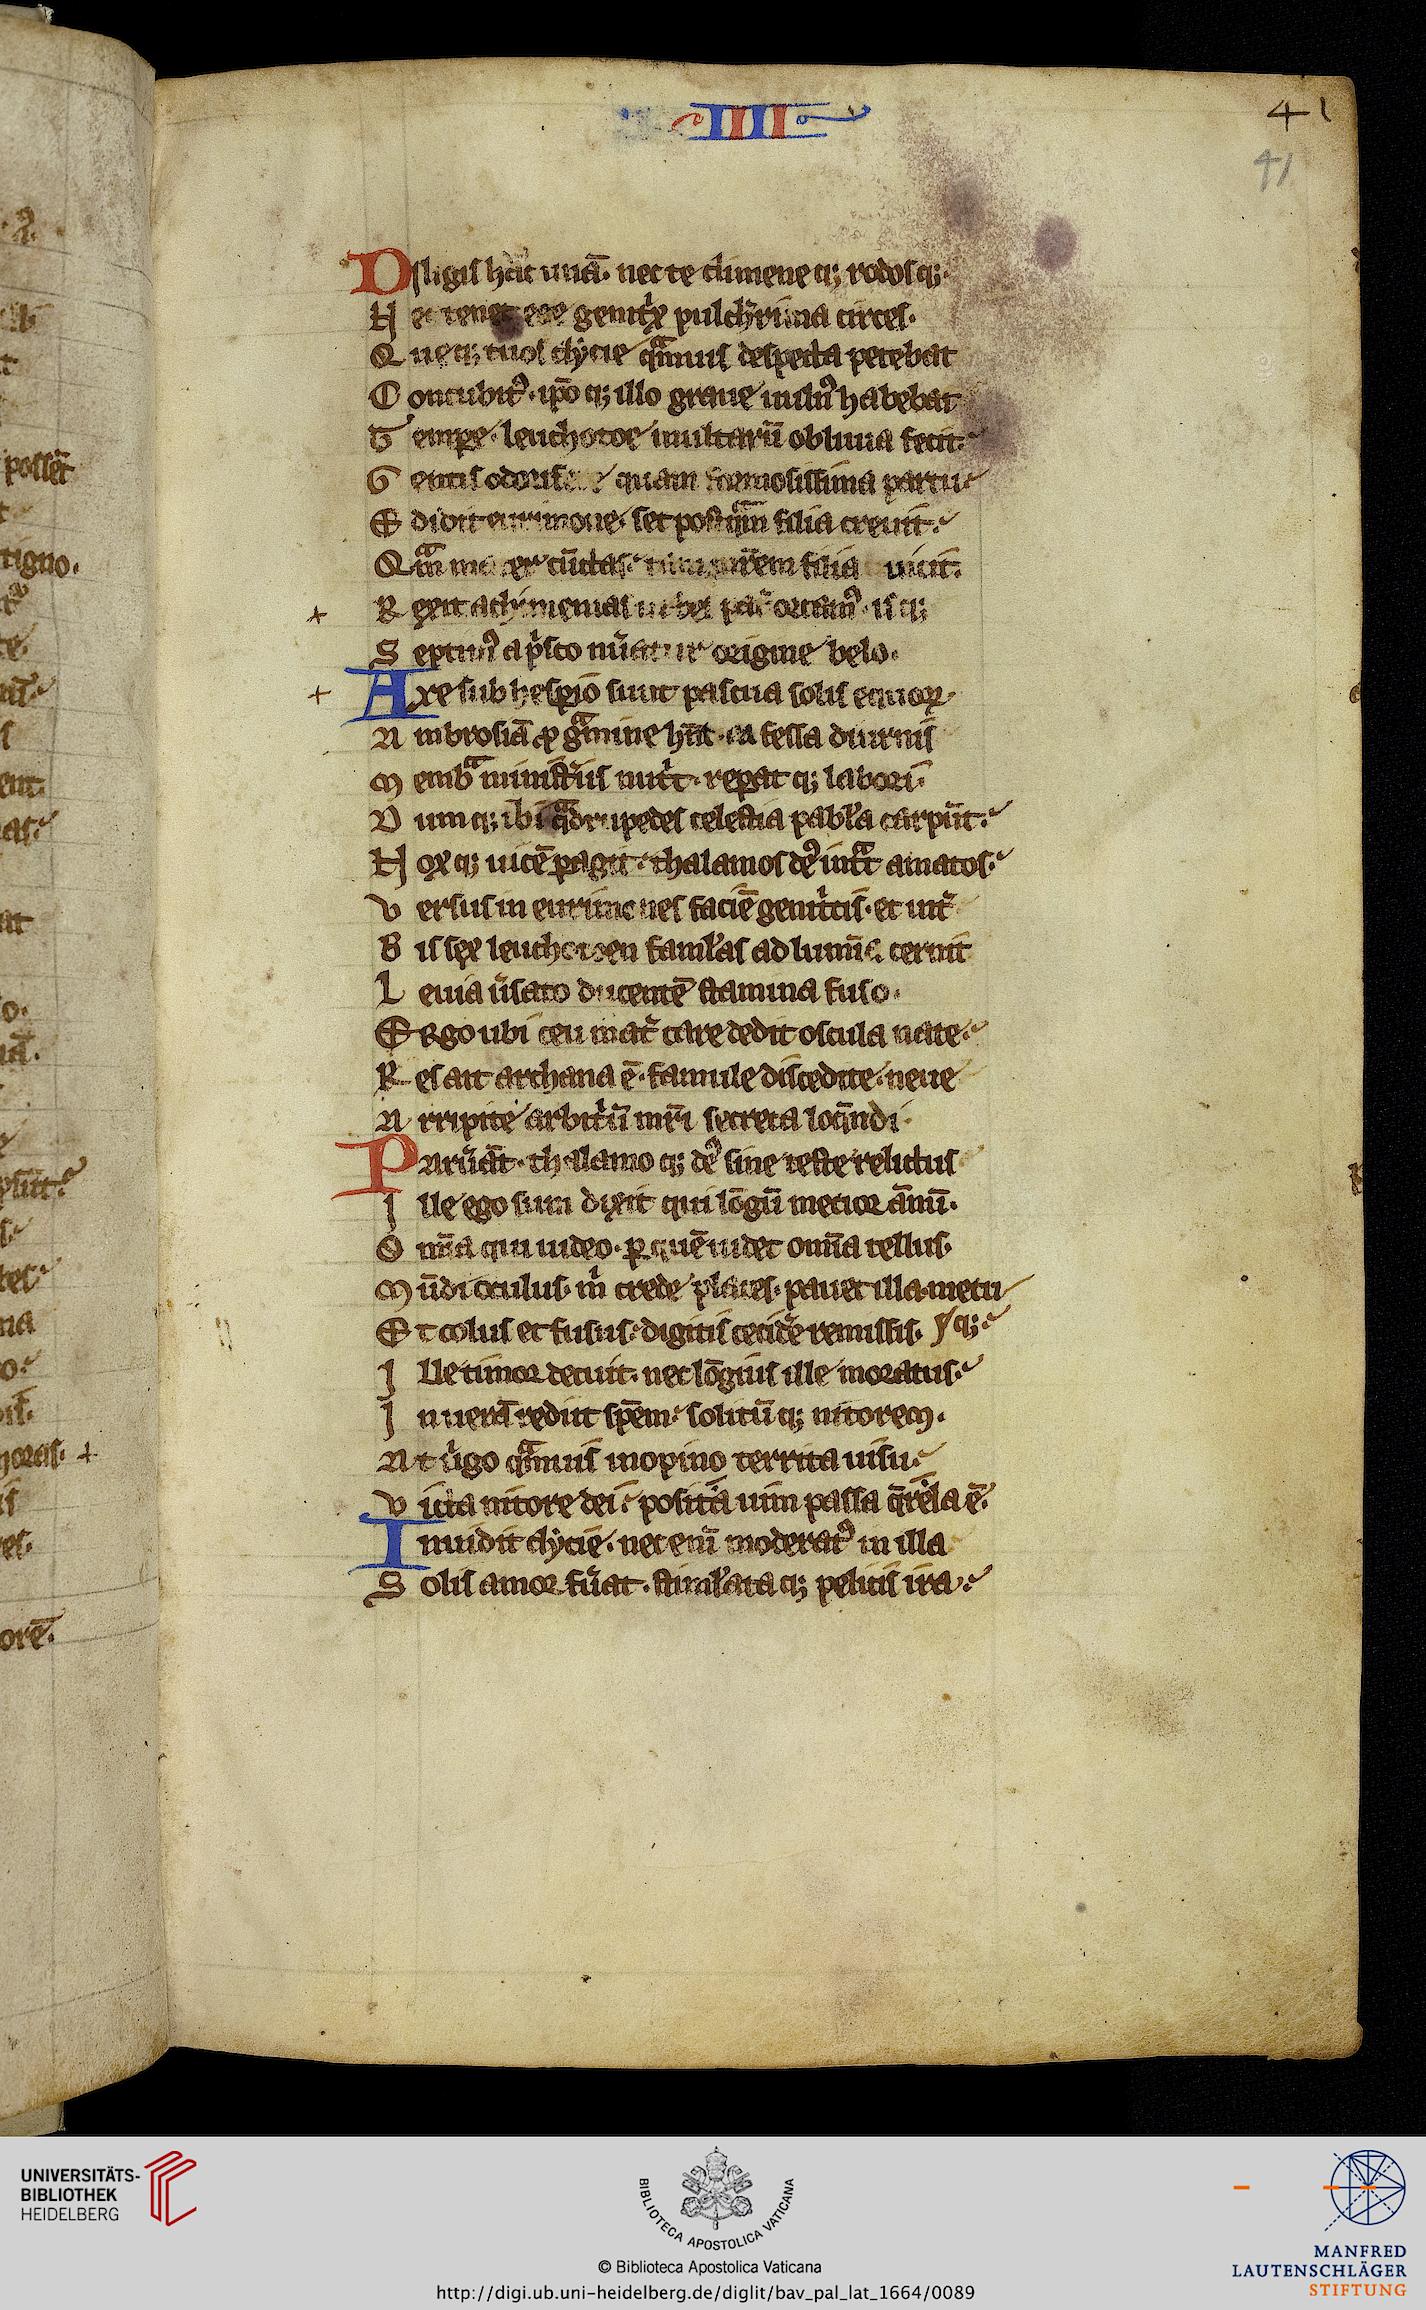 IIII
41
41
Diligis hāc unā· nec te climene qꝫ rodos qꝫ·
H ec tenet eee genitⁱx pulchrima circes·
Q ue qꝫ tuos clẏcie qᵃmuis despecta petebat
C oncubitꝰ· ip̄o qꝫ illo graue uulnꝰ habebat
T empe· leuchotoe multarū obliuia fecit·
G entis odorifere quam formosissima partu
E didit eurimone· set postqᵃm filia creuit·
Qᵃm mater cūctas· tam mr̄em filia uicit·
R exit achimenias urbes pat̉ orcamꝰ· is qꝫ
S eptimꝰ a pⁱsco nūatur origine belo·
Axe sub hesꝑio sunt pascua solis equoꝝ
A mbrosiā ꝓ gᵃmine hn̄t· ea fessa diurnis
M embᵃ ministͥiis nutⁱt· reꝑat qꝫ labori·
D um qꝫ ibi qᵃdrupedes celestia pabl̉a carpūt·
N ox qꝫ uicē ꝑagit· thalamos dꝰ intᵃt amatos·
V ersus in eurimones faciē genitⁱcis· et int̉
B is sex leuchotoen faml̉as ad lumīa cernit
L euia ủsato ducentē stamina fuso·
Ergo ubi ceu mat̉ care dedit oscula nate·
R es ait archana ē· famule discedite· neue
A rripite arbitⁱū mr̄i secreta loqᵃndi·
Parủāt· thalamo qꝫ dꝰ sine teste relictus
I lle ego sum dixit qui lōgū metior ānū·
O mīa qui uideo· ꝑ quē uidet omīa tellus·
M ūdi oculus· m̄ crede places· pauet illa metu
E t colus et fusus· digitis cecid̉e remissis· qꝫ·
I lle timor decuit· nec lōgius ille moratus·
I n uerā rediit spēm· solitū qꝫ nitorem·
A t ủgo qᵃmuis inopino territa uisu·
V icta nitore dei· posita uim passa q̄rela ē·
Inuidit clẏcie· nec enī moderatꝰ in illa
S olis amor fủat· stiml̉ata qꝫ pelicis ira·
possēt
tigno·
UNIVERSITÄTS-
BIBLIOTHEK
HEIDELBERG
BIBLIOTECA APOSTOLICA VATICANA
© Biblioteca Apostolica Vaticana
http://digi.ub.uni-heidelberg.de/diglit/bav_pal_lat_1664/0089
MANFRED
LAUTENSCHLÄGER
STIFTUNG